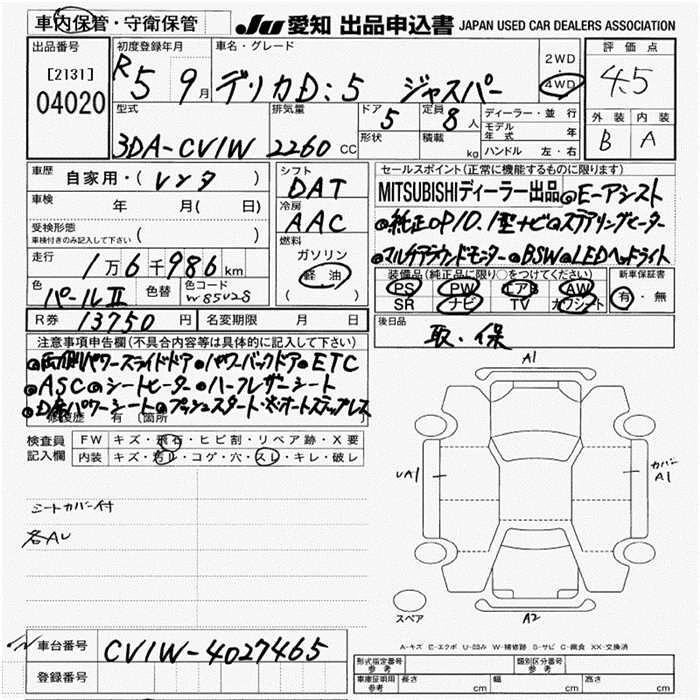 車内保管・守衛保管
JU 愛知 出品申込書 JAPAN USED CAR DEALERS ASSOCIATION
出品番号
[2131]
04020
初度登録年月
R5 9月
車名・グレード
デリカD:5 ジャスパー
2WD
4WD
評価点
4.5
外装 内装
B A
型式
3DA-CV1W
排気量
2260 CC
ドア
5
形状
定員
8人
積載
kg
ディーラー・並行
モデル年式 年
ハンドル 左・右
車歴
自家用・(レンタ)
車検
年 月(日)
受検形態
車検付きのみ記入して下さい ( )
走行
1万6千986km
色
パールII
色替
色コード
W85V28
R券 13750円
名変期限 月 日
シフト
DAT
冷房
AAC
燃料
ガソリン
軽油
( )
セールスポイント(正常に機能するものに限ります)
MITSUBISHIディーラー出品◎E-アシスト
◎純正OP10.1型ナビ◎ステアリングヒーター
◎マルチアラウンドモニター◎BSW◎LEDヘッドライト
装備品(純正品に限り○をつけてください)
PS PW エアB AW
SR ナビ TV カワシート
新車保証書
有・無
後日品
取・保
注意事項申告欄(不具合内容等は具体的に記入して下さい)
◎両側パワースライドドア◎パワーバックドア◎ETC
◎ASC◎シートヒーター◎ハーフレザーシート
◎D席パワーシート◎プッシュスタート・※オートステップレス
修復歴 有 〔箇所
検査員記入欄
FW キズ・飛石・ヒビ割・リペア跡・X要
内装 キズ・汚れ・コゲ・穴・スレ・キレ・破レ
シートカバー付
各AU
A1
UA1
カバーA1
A2
スペア
A-キズ E-エクボ U-凹み W-補修跡 S-サビ C-腐食 XX-交換済
車台番号 CV1W-4027465
登録番号
型式指定番号 参考
類別区分番号 参考
車庫証明用 参考
長さ cm
幅 cm
高さ cm